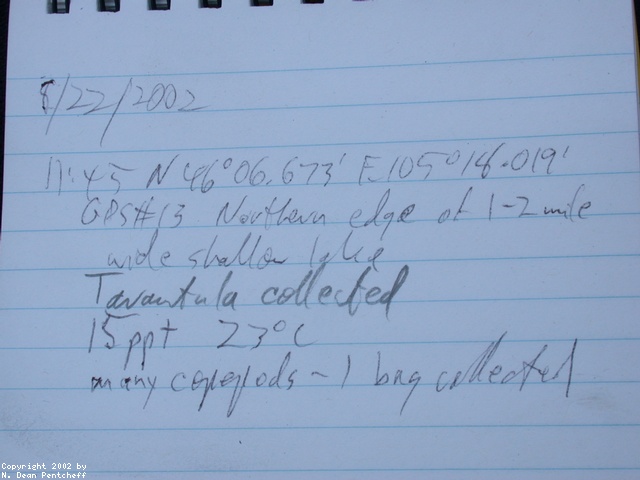 8/22/2002
11:45 N 46°06.673' E 105°18.019'
GPS#13 Northern edge of 1-2 mile
wide shallow lake
Tarantula collected
15ppt 23°C
many copepods - 1 bag collected
Copyright 2002 by
N. Dean Pentcheff